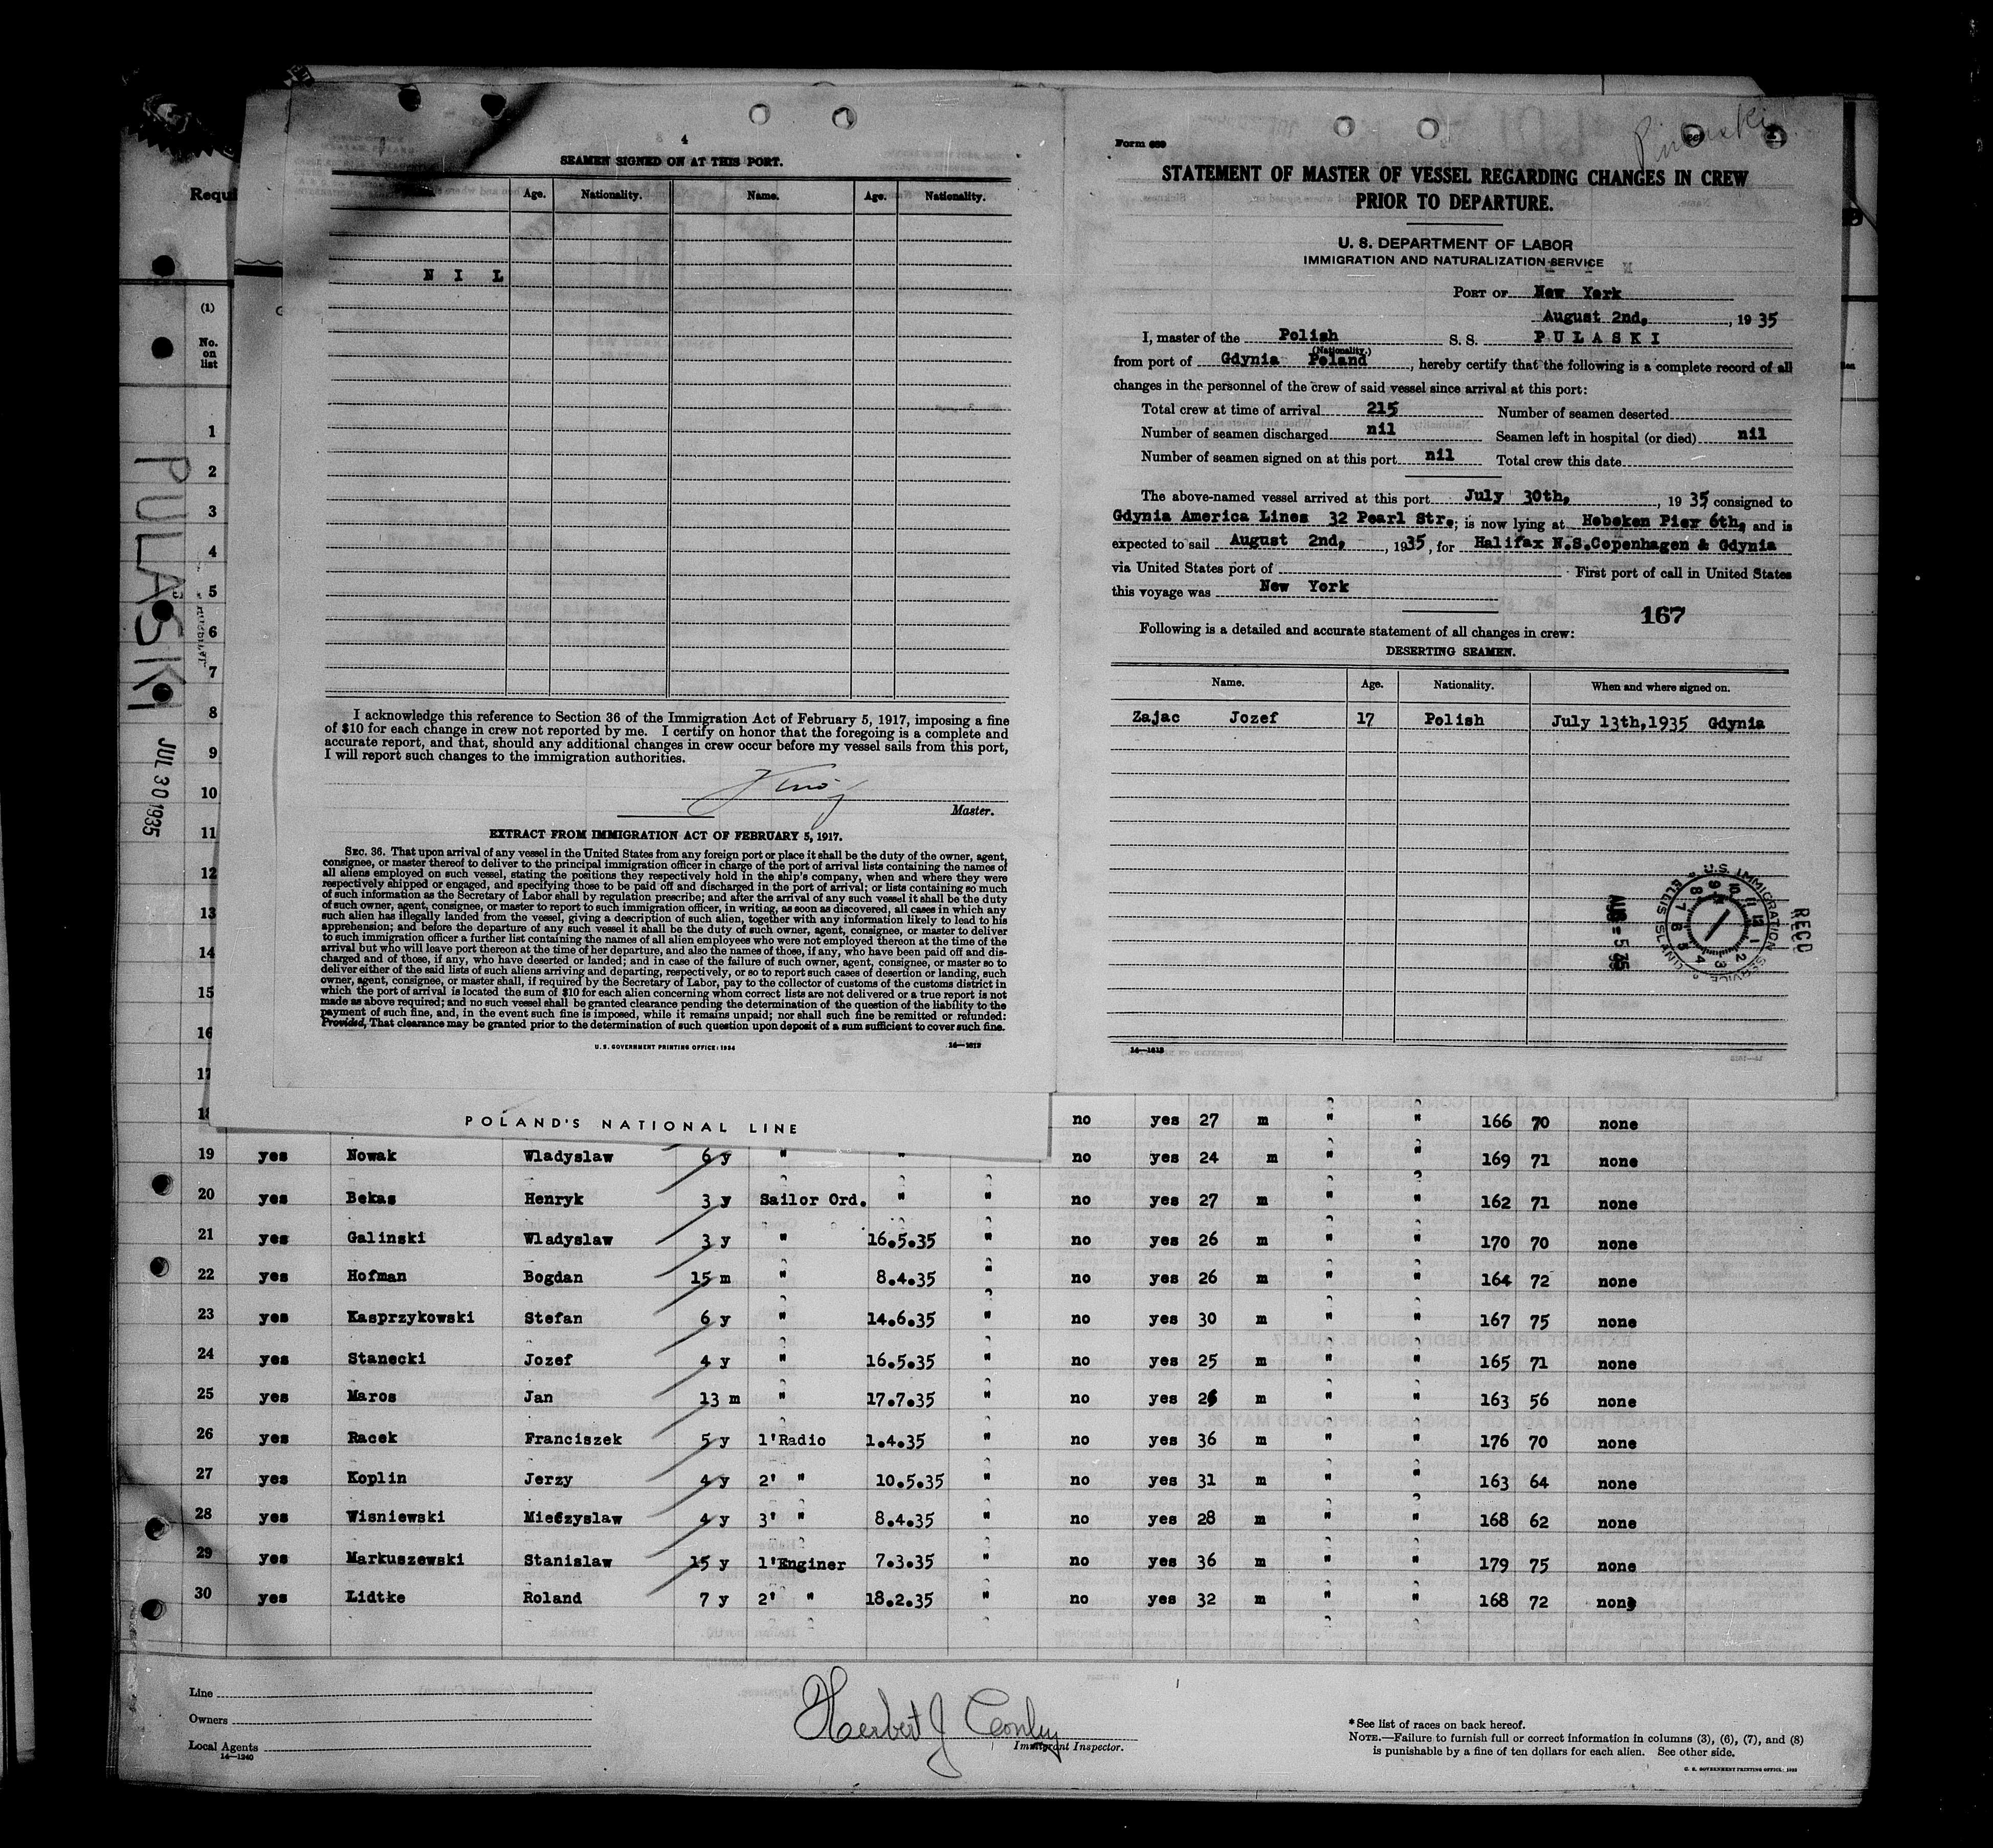 4
SEAMEN SIGNED ON AT THIS PORT.
Age. Nationality. Name. Age. Nationality.
N I L
I acknowledge this reference to Section 36 of the Immigration Act of February 5, 1917, imposing a fine
of $10 for each change in crew not reported by me. I certify on honor that the foregoing is a complete and
accurate report, and that, should any additional changes in crew occur before my vessel sails from this port,
I will report such changes to the immigration authorities.
Master.
EXTRACT FROM IMMIGRATION ACT OF FEBRUARY 5, 1917.
SEC. 36. That upon arrival of any vessel in the United States from any foreign port or place it shall be the duty of the owner, agent,
consignee, or master thereof to deliver to the principal immigration officer in charge of the port of arrival lists containing the names of
all aliens employed on such vessel, stating the positions they respectively hold in the ship's company, when and where they were
respectively shipped or engaged, and specifying those to be paid off and discharged in the port of arrival; or lists containing so much
of such information as the Secretary of Labor shall by regulation prescribe; and after the arrival of any such vessel it shall be the duty
of such owner, agent, consignee, or master to report to such immigration officer, in writing, as soon as discovered, all cases in which any
such alien has illegally landed from the vessel, giving a description of such alien, together with any information likely to lead to his
apprehension; and before the departure of any such vessel it shall be the duty of such owner, agent, consignee, or master to deliver
to such immigration officer a further list containing the names of all alien employees who were not employed thereon at the time of the
arrival but who will leave port thereon at the time of her departure, and also the names of those, if any, who have been paid off and dis-
charged and of those, if any, who have deserted or landed; and in case of the failure of such owner, agent, consignee, or master so to
deliver either of the said lists of such aliens arriving and departing, respectively, or so to report such cases of desertion or landing, such
owner, agent, consignee, or master shall, if required by the Secretary of Labor, pay to the collector of customs of the customs district in
which the port of arrival is located the sum of $10 for each alien concerning whom correct lists are not delivered or a true report is not
made as above required; and no such vessel shall be granted clearance pending the determination of the question of the liability to the
payment of such fine, and, in the event such fine is imposed, while it remains unpaid; nor shall such fine be remitted or refunded:
Provided, That clearance may be granted prior to the determination of such question upon deposit of a sum sufficient to cover such fine.
U. S. GOVERNMENT PRINTING OFFICE: 1934 14—1613
POLAND'S NATIONAL LINE
Form 689
STATEMENT OF MASTER OF VESSEL REGARDING CHANGES IN CREW
PRIOR TO DEPARTURE.
U. S. DEPARTMENT OF LABOR
IMMIGRATION AND NATURALIZATION SERVICE
PORT OF New York
August 2nd, , 19 35
I, master of the Polish S. S. P U L A S K I
(Nationality.)
from port of Gdynia Poland , hereby certify that the following is a complete record of all
changes in the personnel of the crew of said vessel since arrival at this port:
Total crew at time of arrival 215 Number of seamen deserted
Number of seamen discharged nil Seamen left in hospital (or died) nil
Number of seamen signed on at this port nil Total crew this date
The above-named vessel arrived at this port July 30th, , 19 35 consigned to
Gdynia America Lines 32 Pearl Str.; is now lying at Hoboken Pier 6th, and is
expected to sail August 2nd, , 1935, for Halifax N.S.Copenhagen & Gdynia
via United States port of First port of call in United States
this voyage was New York
167
Following is a detailed and accurate statement of all changes in crew:
DESERTING SEAMEN.
Name. Age. Nationality. When and where signed on.
Zajac Jozef 17 Polish July 13th,1935 Gdynia
RECD
U.S. IMMIGRATION SERVICE
ELLIS ISLAND
AUG - 5 35
14—1613
Requi
(1)
No.
on
list
PULASKI
JUL 30 1935
1
2
3
4
5
6
7
8
9
10
11
12
13
14
15
16
17
18 no yes 27 m " " 166 70 none
19 yes Nowak Wladyslaw 6 y " " no yes 24 m " " 169 71 none
20 yes Bekas Henryk 3 y Sailor Ord. " " no yes 27 m " " 162 71 none
21 yes Galinski Wladyslaw 3 y " 16.5.35 " no yes 26 m " " 170 70 none
22 yes Hofman Bogdan 15 m " 8.4.35 " no yes 26 m " " 164 72 none
23 yes Kasprzykowski Stefan 6 y " 14.6.35 " no yes 30 m " " 167 75 none
24 yes Stanecki Jozef 4 y " 16.5.35 " no yes 25 m " " 165 71 none
25 yes Maros Jan 13 m " 17.7.35 " no yes 26 m " " 163 56 none
26 yes Racek Franciszek 5 y 1'Radio 1.4.35 " no yes 36 m " " 176 70 none
27 yes Koplin Jerzy 4 y 2' " 10.5.35 " no yes 31 m " " 163 64 none
28 yes Wisniewski Mieczyslaw 4 y 3' " 8.4.35 " no yes 28 m " " 168 62 none
29 yes Markuszewski Stanislaw 15 y 1'Enginer 7.3.35 " no yes 36 m " " 179 75 none
30 yes Lidtke Roland 7 y 2' " 18.2.35 " no yes 32 m " " 168 72 none
Line
Owners
Local Agents
14—1240
Herbert J Conley
Immigrant Inspector.
*See list of races on back hereof.
NOTE.—Failure to furnish full or correct information in columns (3), (6), (7), and (8)
is punishable by a fine of ten dollars for each alien. See other side.
U. S. GOVERNMENT PRINTING OFFICE: 1933